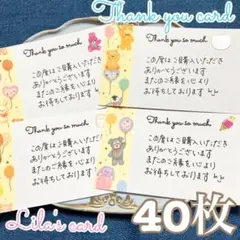 Thank you card
Thank you so much
この度はご購入いただき
ありがとうございます
またのご縁を心より
お待ちしております
Thank you so much
この度はご購入いただき
ありがとうございます
またのご縁を心より
お待ちしております
Thank you so much
この度はご購入いただき
ありがとうございます
またのご縁を心より
お待ちしております
Thank you so much
この度はご購入いただき
ありがとうございます
またのご縁を心より
お待ちしております
Lila's card
40枚